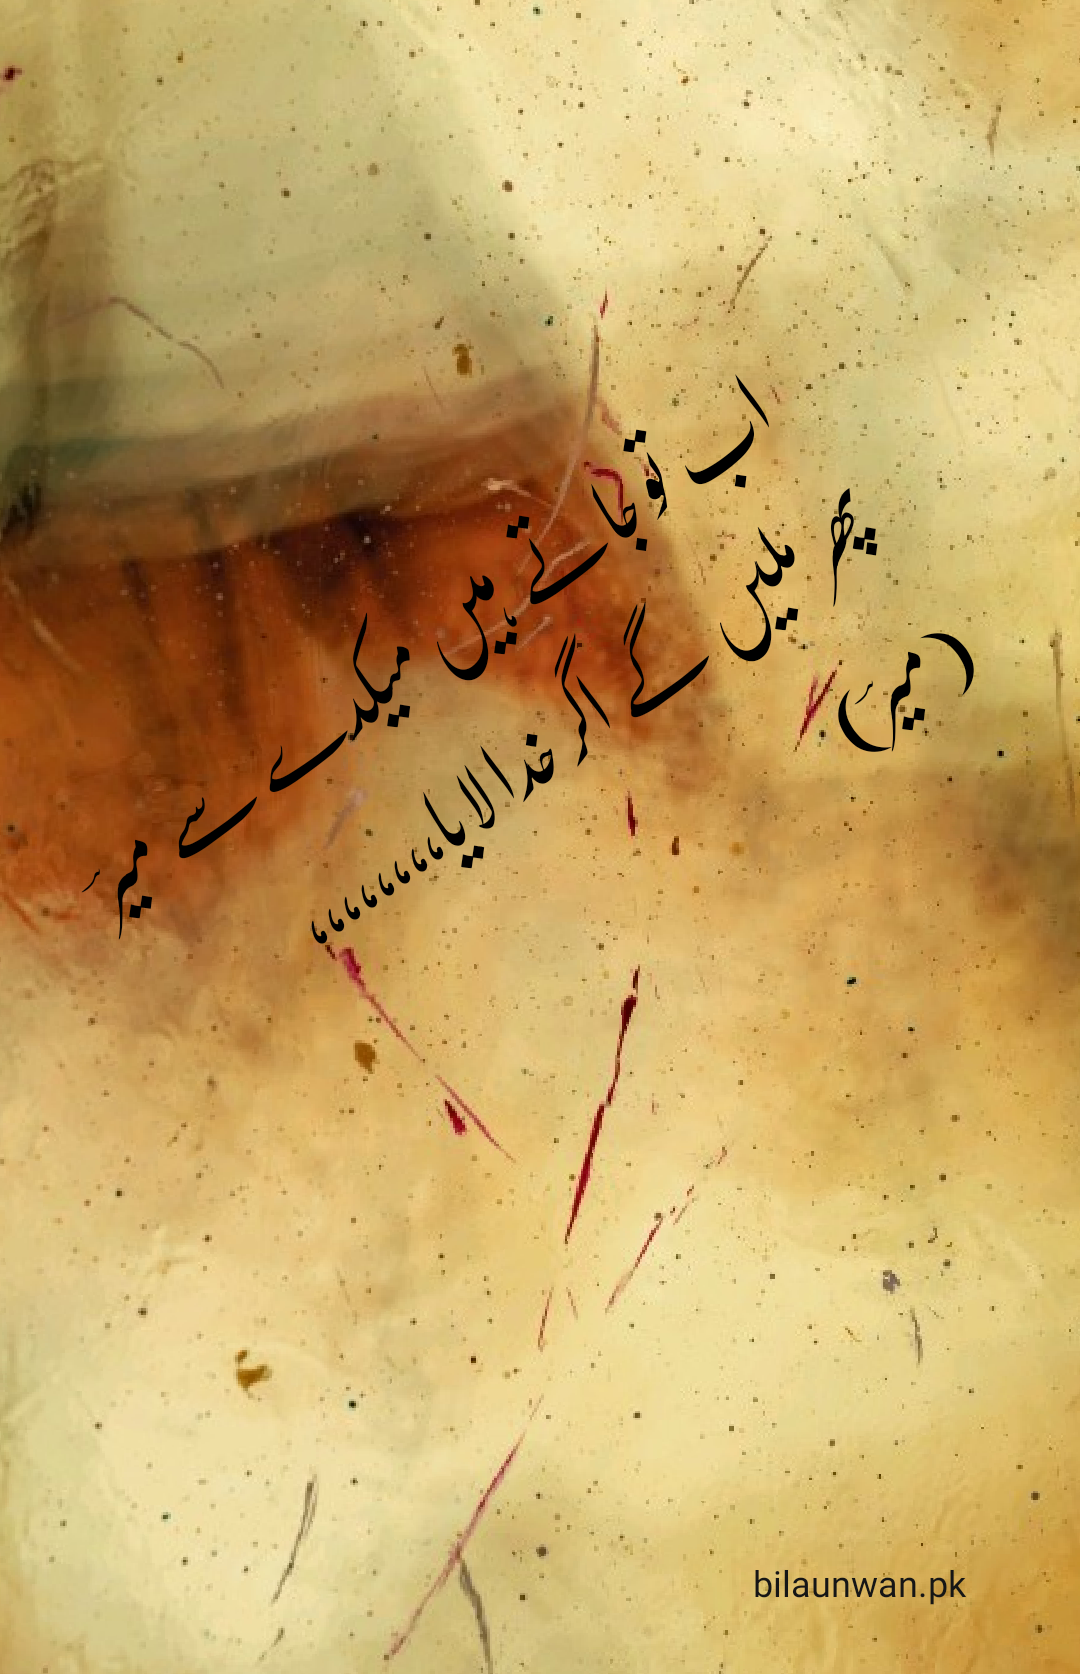 اب تو جاتے ہیں میکدے سے میرؔ
پھر ملیں گے اگر خدا لایا،،،،،،،،
(میرؔ)
bilaunwan.pk